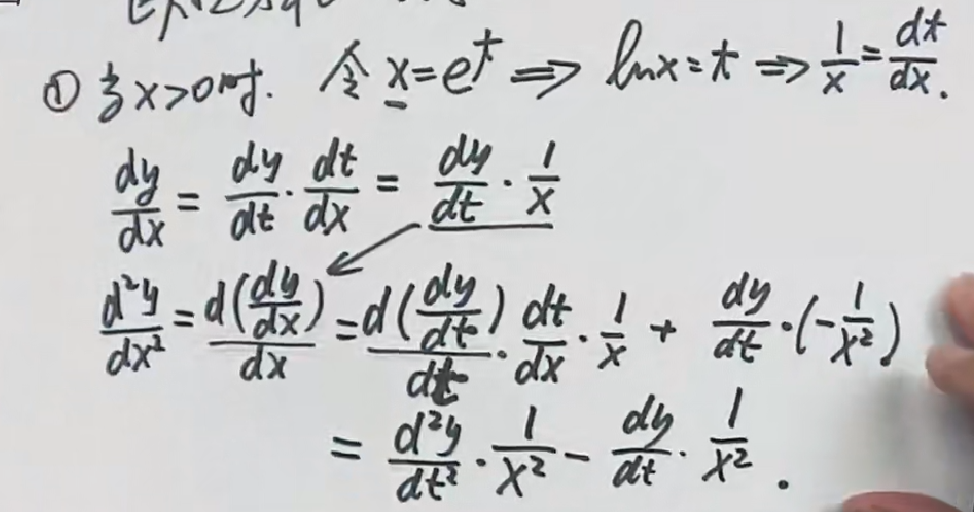 ① 当x>0时. 令 x=e^t ⟹ lnx=t ⟹ 1/x = dt/dx.
dy/dx = dy/dt · dt/dx = dy/dt · 1/x
d²y/dx² = d(dy/dx)/dx = d(dy/dt)/dt · dt/dx · 1/x + dy/dt · (-1/x²)
= d²y/dt² · 1/x² - dy/dt · 1/x² .